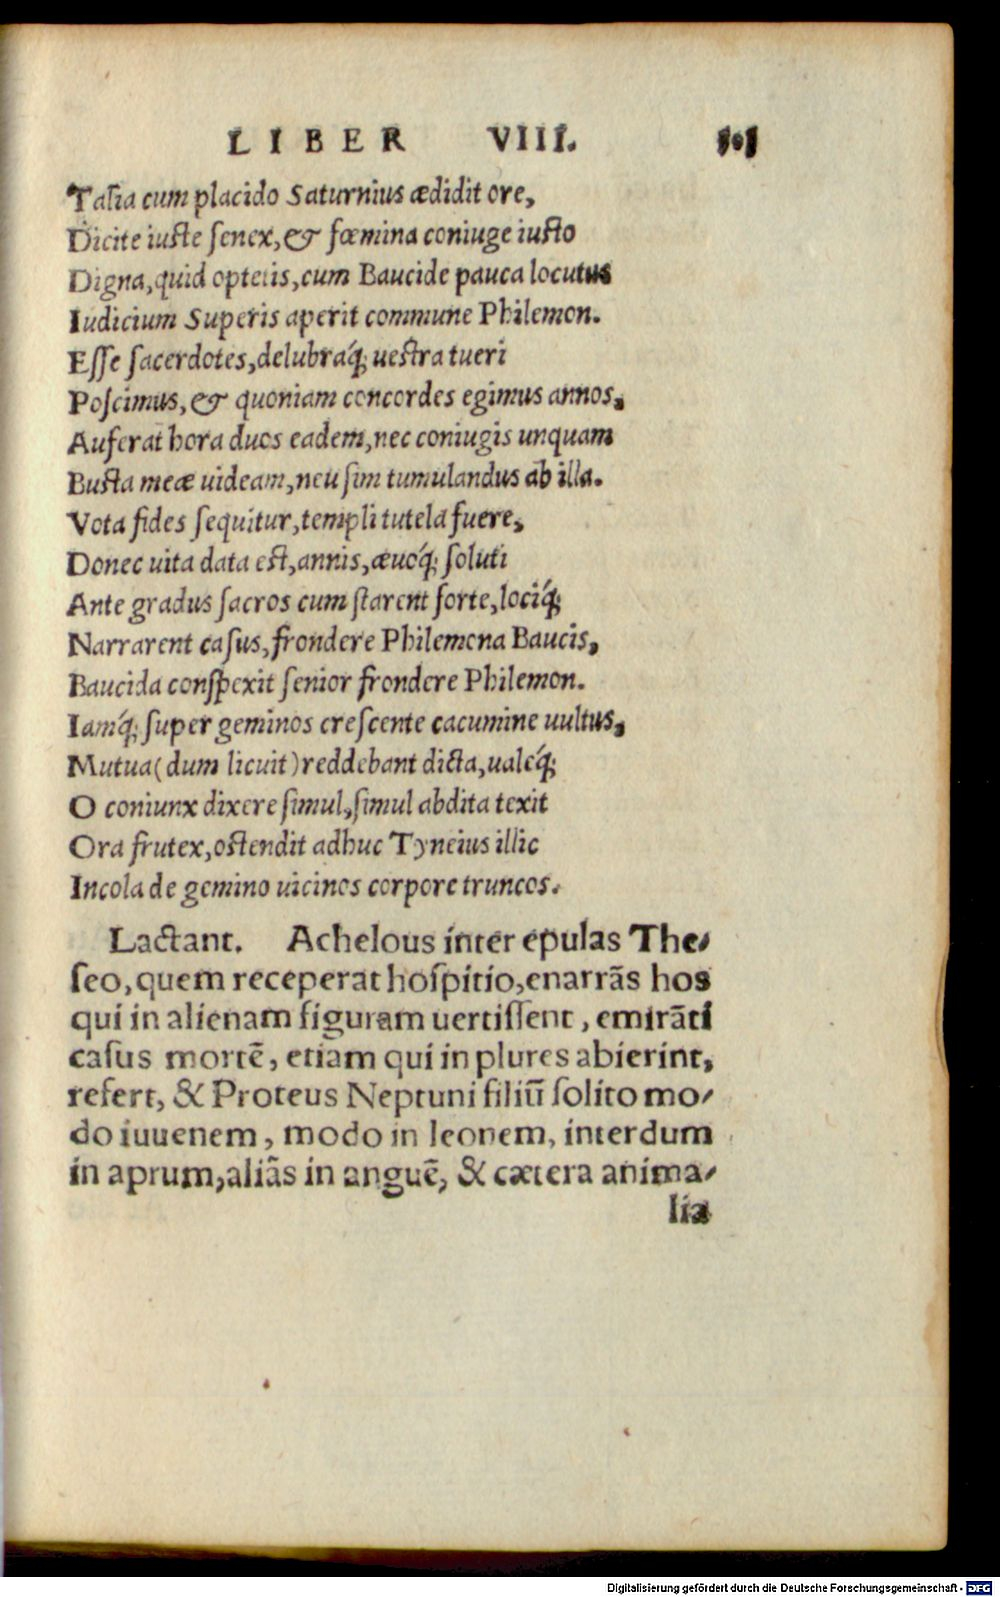 LIBER VIII. 101
Talia cum placido Saturnius ædidit ore,
Dicite iuste senex, & fœmina coniuge iusto
Digna, quid optetis, cum Baucide pauca locutus
Iudicium Superis aperit commune Philemon.
Esse sacerdotes, delubraq́; uestra tueri
Poscimus, & quoniam concordes egimus annos,
Auferat hora duos eadem, nec coniugis unquam
Busta meæ uideam, neu sim tumulandus ab illa.
Vota fides sequitur, templi tutela fuere,
Donec uita data est, annis, æuoq́; soluti
Ante gradus sacros cum starent forte, lociq́;
Narrarent casus, frondere Philemona Baucis,
Baucida conspexit senior frondere Philemon.
Iamq́; super geminos crescente cacumine uultus,
Mutua (dum licuit) reddebant dicta, ualeq́;
O coniunx dixere simul, simul abdita texit
Ora frutex, ostendit adhuc Tyneius illic
Incola de gemino uicinos corpore truncos.
Lactant. Achelous inter epulas The-
seo, quem receperat hospitio, enarrãs hos
qui in alienam figuram uertissent, emirãti
casus mortẽ, etiam qui in plures abierint,
refert, & Proteus Neptuni filiũ solito mo-
do iuuenem, modo in leonem, interdum
in aprum, aliãs in anguẽ, & cætera anima-
lia
Digitalisierung gefördert durch die Deutsche Forschungsgemeinschaft - DFG